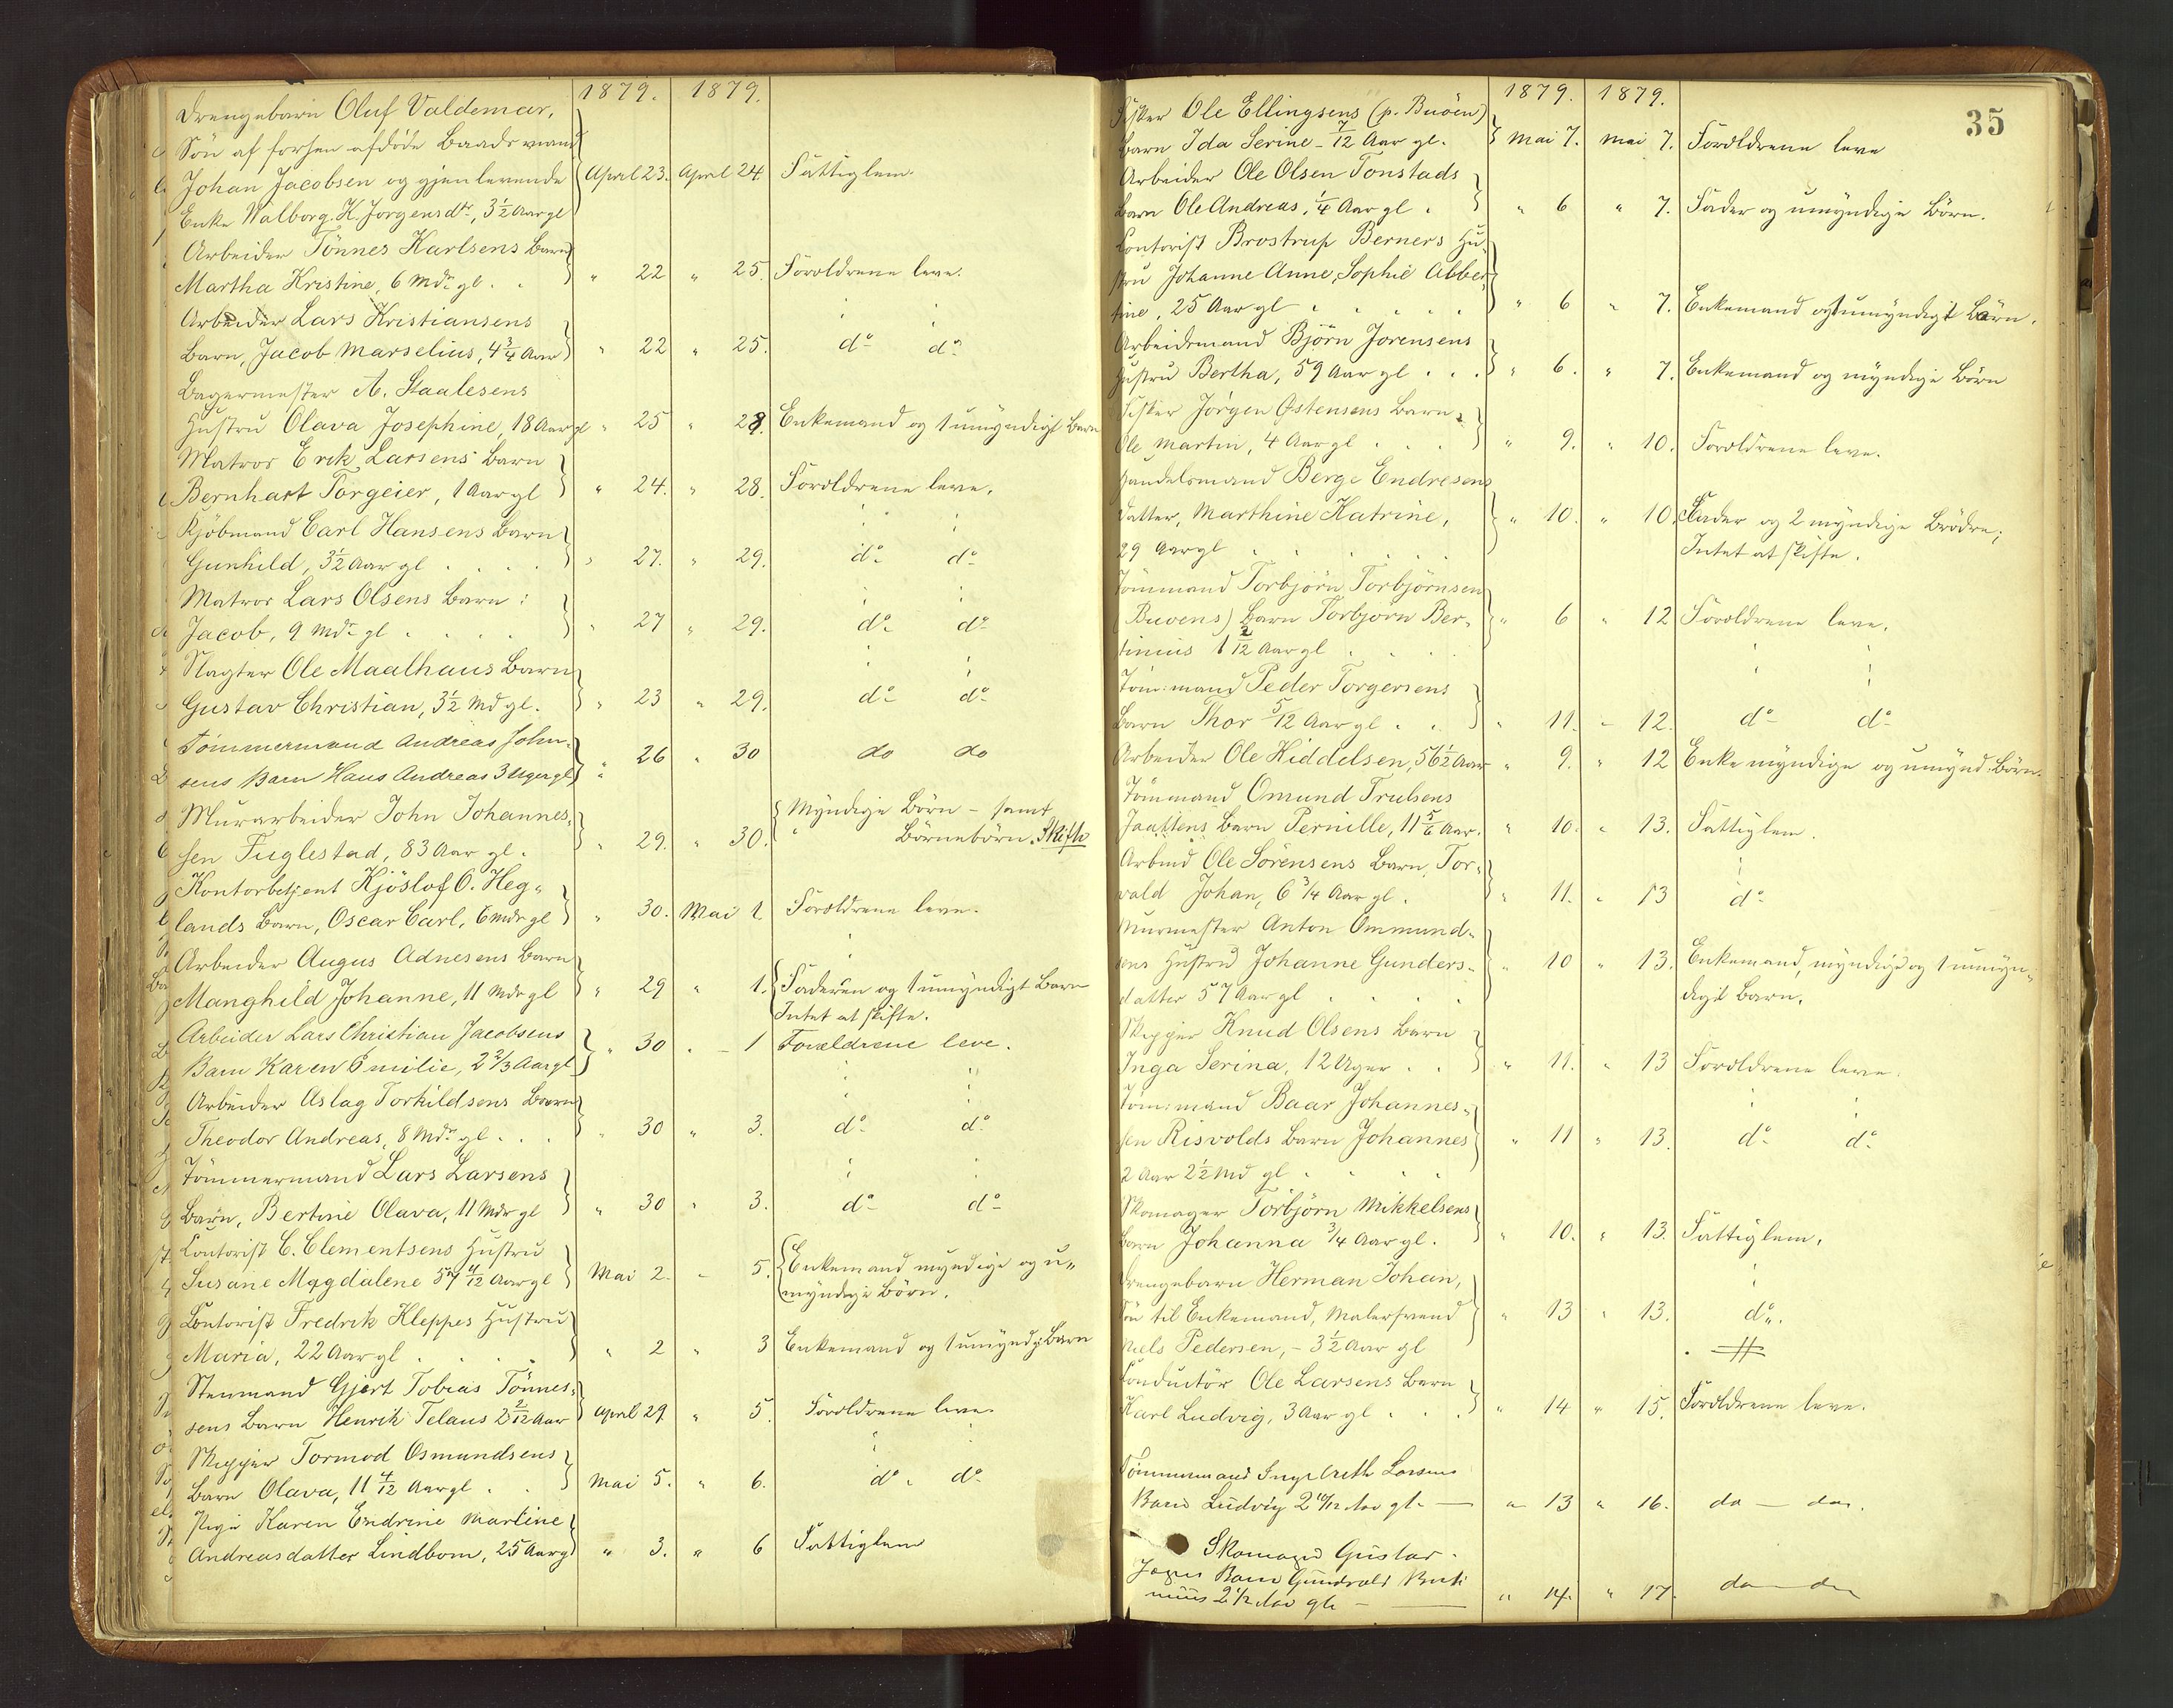 1879. 1879.
Drengebarn Oluf Valdemar,
Søn af forhen afdøde Baadsmand
Johan Jacobsen og gjenlevende April 23. April 24. Fattiglem.
Enke Walborg K. Jørgensdtr, 3 1/2 Aar gl
Arbeider Tönnes Karlsens Barn
Martha Kristine, 6 Mdr gl. . " 22 " 25. Forældrene leve.
Arbeider Lars Kristiansens
Barn, Jacob Marselius, 4 3/4 Aar " 22 " 25. do do
Bagermester A. Staalesens
Hustru Olava Josephine, 18 Aar gl " 25 " 28. Enkemand og 1 umyndigt Barn
Matros Erik Larsens Barn
Bernhart Torgeier, 1 Aar gl " 24. " 28. Forældrene leve.
Kjøbmand Carl Hansens Barn
Gunhild, 3 1/2 Aar gl . . . . " 27. " 29. do do
Matros Lars Olsens Barn :
Jacob, 9 Mdr gl . . . . " 27 " 29. do do
Slagter Ole Maalhaus Barn
Gustav Christian, 3 1/2 Md gl. " 23 " 29. do do
Tømmermand Andreas John-
sens Barn Hans Andreas 3 Uger gl " 26 " 30 do do
Murarbeider John Johannes- Myndige Børn - samt
sen Fuglestad, 83 Aar gl. " 29. " 30. Børnebørn. Skifte
Kontorbetjent Kjöslof O. Heg-
lands Barn, Oscar Carl, 6 mdr gl " 30. Mai 1. Forældrene leve.
Arbeider Augus Adnesens Barn
Manghild Johanne, 11 Mdr gl " 29 " 1. Faderen og 1 umyndigt Barn
Intet at skifte.
Arbeider Lars Christian Jacobsens
Barn Karen Emilie, 2 2/3 Aar gl " 30 " 1 Forældrene leve.
Arbeider Aslag Torkildsens Barn
Theodor Andreas, 8 Mdr gl . . . " 30 " 3. do do
Tömmermand Lars Larsens
Barn, Bertine Olava, 11 Mdr gl " 30 " 3. do do
Contorist C. Clementsens Hustru
Susane Magdalene 57 4/12 Aar gl Mai 2. " 5. Enkemand myndige og u-
myndige Børn.
Contorist Fredrik Kleppes Hustru
Maria, 22 Aar gl . . . . " 2 " 3 Enkemand og 1 umyndg Barn
Stenmand Gjert Tobias Tönnes-
sens Barn Henrik Telaus 2 2/12 Aar April 29 " 5. Forældrene leve.
Skipper Tormod Osmundsens
Barn Olava, 11 4/12 Aar gl . . Mai 5. " 6. do do
Pige Karen Endrine Martine
Andreasdatter Lindbom, 25 Aar gl " 3. " 6 Fattiglem
35
1879. 1879.
Fisker Ole Ellingsens (p. Buöen)
Barn Ida Serine - 7/12 Aar gl. Mai 7. Mai 7. Forældrene leve
Arbeider Ole Olsen Tonstads
Barn Ole Andreas, 1/4 Aar gl . " 6 " 7. Fader og umyndige Børn.
Contorist Brostrup Berners Hu-
stru Johanne Anne Sophie Abber-
tine, 25 Aar gl . . . . . " 6 " 7. Enkemand og 1 umyndigt Barn.
Arbeidsmand Björn Jorensens
Hustru Bertha, 59 Aar gl . . . " 6. " 7. Enkemand og myndige Børn
Fisker Jörgen Østensens Barn
Ole Martin, 4 Aar gl . . . . " 9. " 10. Forældrene leve.
Handelsmand Berge Endresens
Datter, Marthine Katrine, " 10. " 10. Fader og 2 myndige Brødre;
29 Aar gl . . . . . Intet at skifte.
Tömmand Torbjörn Torbjörnsen
(Buøens) Barn Torbjörn Ber- " 6 " 12 Forældrene leve.
tinius 1 2/12 Aar gl . . . .
Töm:mand Peder Torgersens
Barn Thor 5/12 Aar gl . . " 11. " 12. do do
Arbeider Ole Hiddelsen, 56 1/2 Aar " 9. " 12 Enke myndige og umynd. Børn.
Tömmand Omund Trulsens
Jaattens Barn Pernille, 11 5/6 Aar. " 10. " 13. Fattiglem.
Arbmd Ole Sörensens Barn, Tor-
vald Johan, 6 3/4 Aar gl. " 11. " 13 do
Murmester Anton Ommund-
sens Hustru Johanne Gunders- " 10 " 13. Enkemand, myndige og 1 umyn-
datter 57 Aar gl . . . . digt Barn.
Skipper Knud Olsens Barn
Inga Serina, 12 Uger . . " 11. " 13 Forældrene leve.
Töm:mand Baar Johannes-
sen Risvolds Barn Johannes " 11 " 13. do do
2 Aar 2 1/2 Md gl . . . .
Skomager Torbjörn Mikkelsens
Barn Johanna 3/4 Aar gl. " 10. " 13. Fattiglem.
Drengebarn Herman Johan,
Søn til Enkemand, Malersvend " 13 " 13. do.
Niels Pedersen, - 3 1/2 Aar gl
Conductör Ole Larsens Barn
Karl Ludvig, 3 Aar gl . . . " 14 " 15. Forældrene leve.
Tömmermand Ingebreth Larsens
Barn Ludvig 2 10/12 Aar gl. — " 13 " 16. do — do.
Skomager Gustav
Barn Gundvald 2 1/2 Aar gl. — " 14. " 17. do do